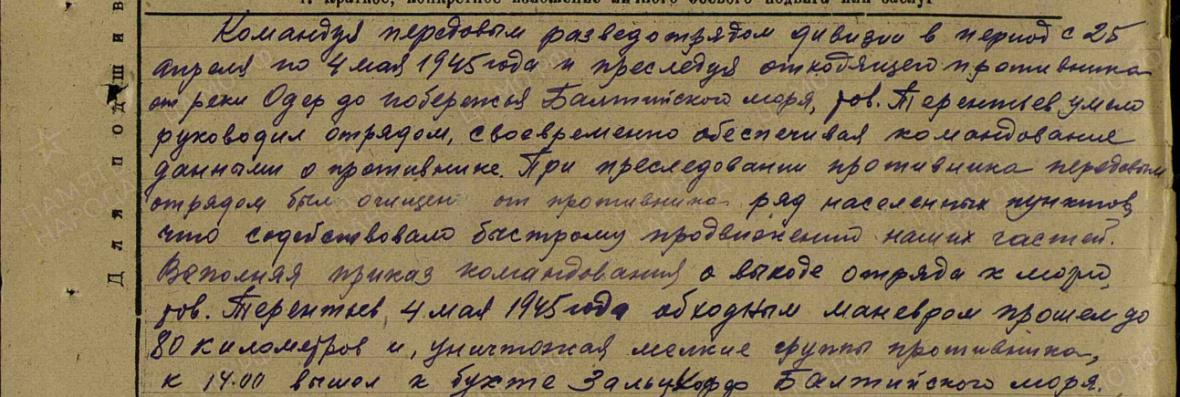 1. Краткое, конкретное изложение личного боевого подвига или заслуг
Для подшив
Командуя передовым разведотрядом дивизии в период с 25
апреля по 4 мая 1945 года и преследуя отходящего противника
от реки Одер до побережья Балтийского моря, тов. Терентьев умело
руководил отрядом, своевременно обеспечивая командование
данными о противнике. При преследовании противника передовым
отрядом был очищен от противника ряд населенных пунктов,
что содействовало быстрому продвижению наших частей.
Выполняя приказ командования о выходе отряда к морю,
тов. Терентьев, 4 мая 1945 года обходным маневром прошел до
80 километров и, уничтожая мелкие группы противника,
к 14.00 вышел к бухте Зальцхорд Балтийского моря.